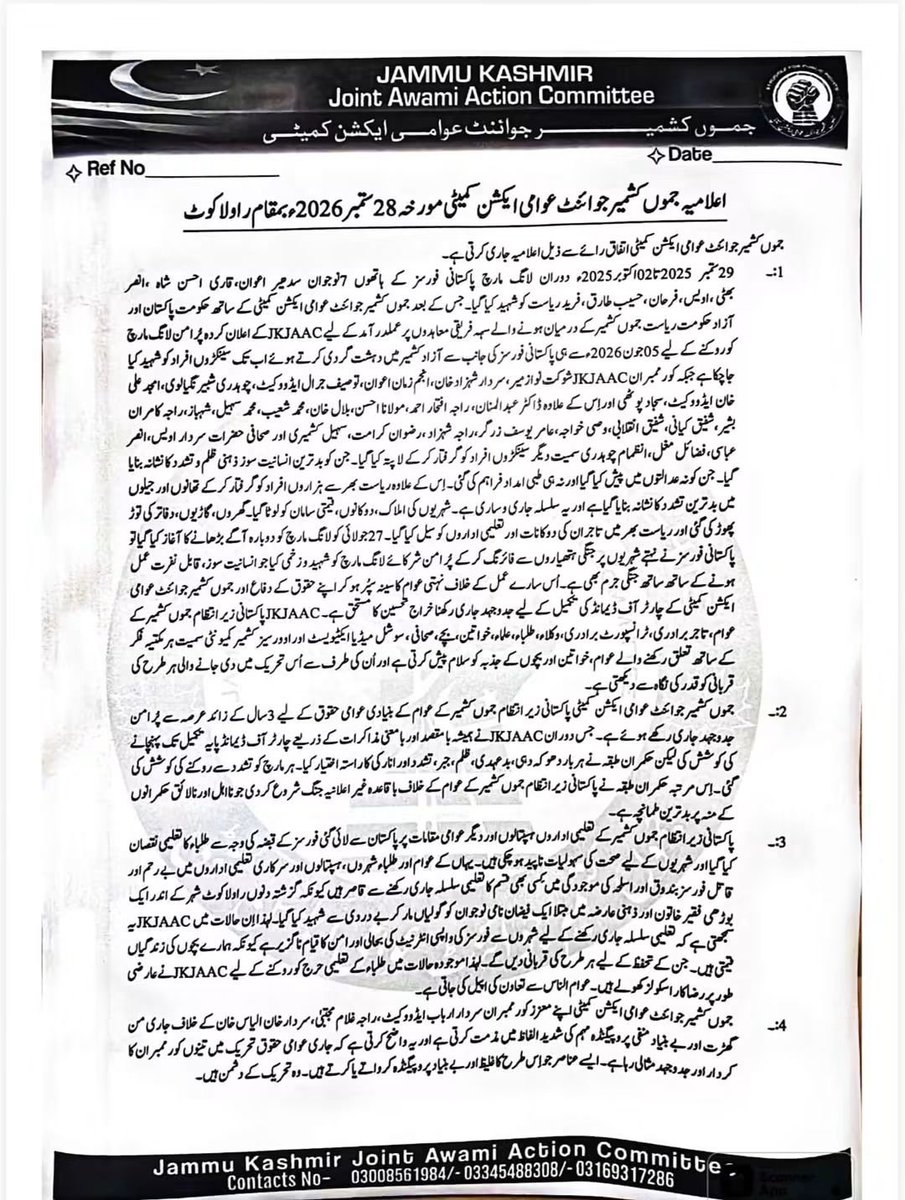 JAMMU KASHMIR
Joint Awami Action Committee
جموں کشمیر جوائنٹ عوامی ایکشن کمیٹی
Ref No
Date
اعلامیہ جموں کشمیر جوائنٹ عوامی ایکشن کمیٹی مورخہ 28 ستمبر 2026ء بمقام راولاکوٹ
جموں کشمیر جوائنٹ عوامی ایکشن کمیٹی اتفاق رائے سے ذیل اعلامیہ جاری کرتی ہے۔
1:۔ 29 ستمبر 2025 تا 02 اکتوبر 2025ء دوران لانگ مارچ پاکستانی فورسز کے ہاتھوں 7 نوجوان سدھیر اعوان، قاری احسن شاہ، انصر
بھٹی، اویس، فرحان، حسیب طارق، فرید ریاست کو شہید کیا گیا۔ جس کے بعد جموں کشمیر جوائنٹ عوامی ایکشن کمیٹی کے ساتھ حکومت پاکستان اور
آزاد حکومت ریاست جموں کشمیر کے درمیان ہونے والے سہہ فریقی معاہدوں پر عملدرآمد کے لیے JKJAAC کے اعلان کردہ پُرامن لانگ مارچ
کو روکنے کے لیے 05 جون 2026ء سے ہی پاکستانی فورسز کی جانب سے آزاد کشمیر میں دہشت گردی کرتے ہوئے اب تک سینکڑوں افراد کو شہید کیا
جا چکا ہے جبکہ کور ممبران JKJAAC شوکت نواز میر، سردار شہزاد خان، انجم زمان اعوان، توصیف جرال ایڈووکیٹ، چوہدری شبیر نگیالوی، امجد علی
خان ایڈووکیٹ، سجاد پونچھی اور اِس کے علاوہ ڈاکٹر عبدالمنان، راجہ افتخار احمد، مولانا احسن، بلال خان، محمد شعیب، محمد سہیل، شہباز، راجہ کامران
بشیر، شفیق کیانی، شفیق انقلابی، وصی خواجہ، عامر یوسف زرگر، راجہ شہزاد، رضوان کرامت، سہیل کشمیری اور صحافی حضرات سردار اویس، انصر
عباسی، فضائل مغل، انضمام چوہدری سمیت دیگر سینکڑوں افراد کو گرفتار کر کے لاپتہ کیا گیا۔ جن کو بدترین انسانیت سوز ذہنی ظلم و تشدد کا نشانہ بنایا
گیا۔ جن کو نہ عدالتوں میں پیش کیا گیا اور نہ ہی طبی امداد فراہم کی گئی۔ اِس کے علاوہ ریاست بھر سے ہزاروں افراد کو گرفتار کر کے تھانوں اور جیلوں
میں بدترین تشدد کا نشانہ بنایا گیا ہے اور یہ سلسلہ جاری و ساری ہے۔ شہریوں کی املاک، دوکانوں، قیمتی سامان کو لوٹا گیا۔ گھروں، گاڑیوں، دفاتر کی توڑ
پھوڑ کی گئی اور ریاست بھر میں تاجران کی دوکانات اور تعلیمی اداروں کو سیل کیا گیا۔ 27 جولائی کو لانگ مارچ کو دوبارہ آگے بڑھانے کا آغاز کیا گیا تو
پاکستانی فورسز نے نہتے شہریوں پر جنگی ہتھیاروں سے فائرنگ کر کے پُرامن شرکائے لانگ مارچ کو شہید و زخمی کیا جو انسانیت سوز، قابل نفرت عمل
ہونے کے ساتھ ساتھ جنگی جرم بھی ہے۔ اُس سارے عمل کے خلاف نہتی عوام کا سینہ سپر ہو کر اپنے حقوق کے دفاع اور جموں کشمیر جوائنٹ عوامی
ایکشن کمیٹی کے چارٹر آف ڈیمانڈ کی تکمیل کے لیے جدوجہد جاری رکھنا خراج تحسین کا مستحق ہے۔ JKJAAC پاکستانی زیر انتظام جموں کشمیر کے
عوام، تاجر برادری، ٹرانسپورٹ برادری، وکلاء، طلباء، علماء، خواتین، بچے، صحافی، سوشل میڈیا ایکٹیویسٹ اور اوورسیز کشمیر کمیونٹی سمیت ہر مکتبہ فکر
کے ساتھ تعلق رکھنے والے عوام، خواتین اور بچوں کے جذبہ کو سلام پیش کرتی ہے اور اُن کی طرف سے اُس تحریک میں دی جانے والی ہر طرح کی
قربانی کو قدر کی نگاہ سے دیکھتی ہے۔
2:۔ جموں کشمیر جوائنٹ عوامی ایکشن کمیٹی پاکستانی زیر انتظام جموں کشمیر کے عوام کے بنیادی عوامی حقوق کے لیے 3 سال کے زائد عرصہ سے پُرامن
جدوجہد جاری رکھے ہوئے ہے۔ جس دوران JKJAAC نے ہمیشہ بامقصد اور بامعنی مذاکرات کے ذریعے چارٹر آف ڈیمانڈ پایہ تکمیل تک پہنچانے
کی کوشش کی لیکن حکمران طبقہ نے ہر بار دھوکہ دہی، بدعہدی، ظلم، جبر، تشدد اور انارکی کا راستہ اختیار کیا۔ ہر مارچ کو تشدد سے روکنے کی کوشش کی
گئی۔ اِس مرتبہ حکمران طبقہ نے پاکستانی زیر انتظام جموں کشمیر کے عوام کے خلاف باقاعدہ غیر اعلانیہ جنگ شروع کر دی جو نااہل اور نالائق حکمرانوں
کے منہ پر بدترین طمانچہ ہے۔
3:۔ پاکستانی زیر انتظام جموں کشمیر کے تعلیمی اداروں ہسپتالوں اور دیگر عوامی مقامات پر پاکستان سے لائی گئی فورسز کے قبضہ کی وجہ سے طلباء کا تعلیمی نقصان
کیا گیا اور شہریوں کے لیے صحت کی سہولیات ناپید ہو چکی ہیں۔ یہاں کے عوام اور طلباء شہروں، ہسپتالوں اور سرکاری تعلیمی اداروں میں بے رحم اور
قاتل فورسز بندوق اور اسلحہ کی موجودگی میں کسی بھی قسم کا تعلیمی سلسلہ جاری رکھنے سے قاصر ہیں کیونکہ گزشتہ دنوں راولاکوٹ شہر کے اندر ایک
بوڑھی فقیر خاتون اور ذہنی عارضہ میں مبتلا ایک فیضان نامی نوجوان کو گولیاں مار کر بے دردی سے شہید کیا گیا۔ لہذا اِن حالات میں JKJAAC یہ
سمجھتی ہے کہ تعلیمی سلسلہ جاری رکھنے کے لیے شہروں سے فورسز کی واپسی انٹرنیٹ کی بحالی اور امن کا قیام ناگزیر ہے کیونکہ ہمارے بچوں کی زندگیاں
قیمتی ہیں۔ جن کے تحفظ کے لیے ہر طرح کی قربانی دیں گے۔ لہذا موجودہ حالات میں طلباء کے تعلیمی حرج کو روکنے کے لیے JKJAAC نے عارضی
طور پر رضا کار اسکولز کھولے ہیں۔ عوام الناس سے تعاون کی اپیل کی جاتی ہے۔
4:۔ جموں کشمیر جوائنٹ عوامی ایکشن کمیٹی اپنے معزز کور ممبران سردار ارباب ایڈووکیٹ، راجہ غلام مجتبیٰ، سردار خان الیاس خان کے خلاف جاری من
گھڑت اور بے بنیاد منفی پروپیگنڈہ مہم کی شدید الفاظ میں مذمت کرتی ہے اور یہ واضح کرتی ہے کہ جاری عوامی حقوق تحریک میں تینوں کور ممبران کا
کردار اور جدوجہد مثالی رہا ہے۔ ایسے عناصر جو اس طرح کا غلیظ اور بے بنیاد پروپیگنڈہ کرواتے یا کرتے ہیں۔ وہ تحریک کے دشمن ہیں۔
Jammu Kashmir Joint Awami Action Committee
Contacts No- 03008561984/- 03345488308/-03169317286